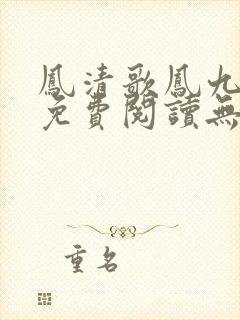 鳳清歌鳳九
免費閱讀無
重名